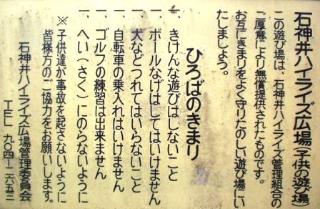 石神井ハイライズ広場(子供の遊び場)
この遊び場は、石神井ハイライズ管理組合の
ご厚意により無償提供されたものです。
お互にきまりをよく守りたのしい遊び場にい
たしましょう。
ひろばのきまり
一、きけんな遊びはしないこと
一、ボールなげはしてはいけません
一、犬などつれてはいらないこと
一、自転車の乗入れはいけません
一、ゴルフの練習は出来ません
一、へい(さく)にのらないように
※子供達が事故を起さないように
皆様方のご協力をお願いします。
石神井ハイライズ広場管理委員会
TEL 九〇四-一六五二